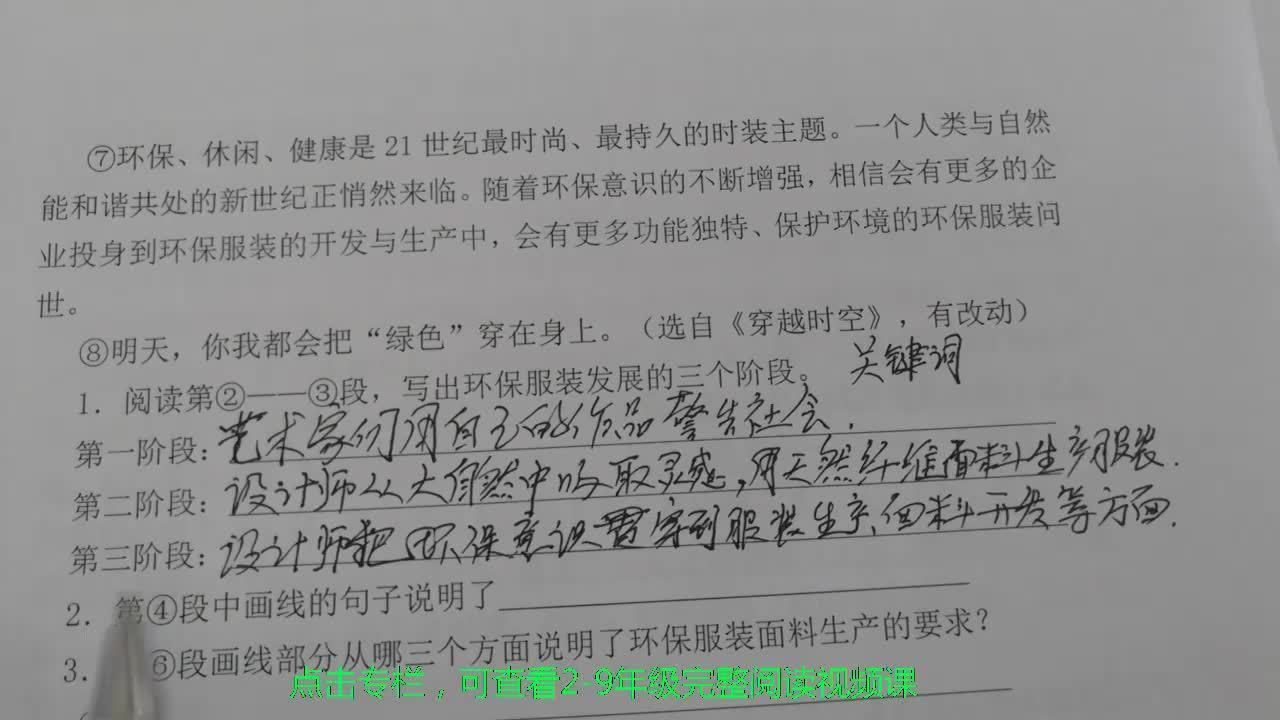 ⑦环保、休闲、健康是21世纪最时尚、最持久的时装主题。一个人类与自然
能和谐共处的新世纪正悄然来临。随着环保意识的不断增强，相信会有更多的企
业投身到环保服装的开发与生产中，会有更多功能独特、保护环境的环保服装问
世。
⑧明天，你我都会把“绿色”穿在身上。（选自《穿越时空》，有改动）
1．阅读第②——③段，写出环保服装发展的三个阶段。 关键词
第一阶段：艺术家们用自己的作品警告社会．
第二阶段：设计师从大自然中吸取灵感，用天然纤维面料生产服装．
第三阶段：设计师把环保意识贯穿到服装生产、面料开发等方面．
2．第④段中画线的句子说明了
3． ⑥段画线部分从哪三个方面说明了环保服装面料生产的要求？
点击专栏，可查看2-9年级完整阅读视频课